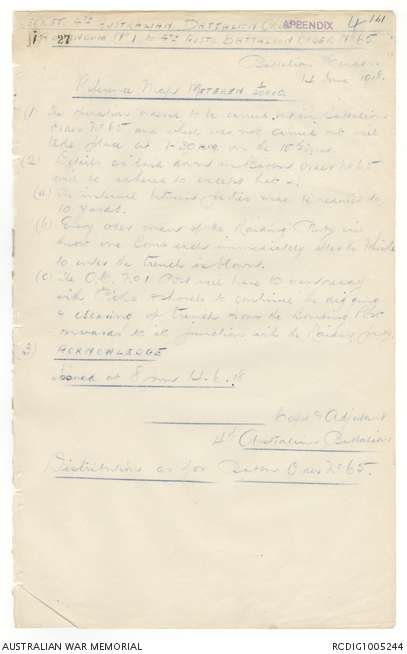 SECRET 4th AUSTRALIAN BATTALION ORDER APPENDIX 4 141
1 27 ADDENDUM No 1 to 4th AUST. BATTALION ORDER No 65
Battalion Headqrs
14 June 1918.
Reference Map METEREN
(1) The operation ordered to be carried out in Battalion
Order No 65 and which was not carried out will
take place at 1-30 a.m. on the 15th inst.
(2) Details as laid down in Battn Order No 65
will be adhered to except that -:
(a) The interval between parties may be reduced to
10 yards.
(b) Every other man of the Raiding Party will
throw one Bomb each immediately after the Whistle
to enter the trench is blown.
(c) The O.C. No 1 Post will have 10 men ready
with Picks & shovels to continue the digging
& clearing of trench from the Post
onwards to its junction with the Raiding Party.
3) ACKNOWLEDGE
Issued at 8 pm 14.6.18
Capt & Adjutant
4th Australian Battalion
Distribution as for Battn Order No 65.
AUSTRALIAN WAR MEMORIAL
RCDIG1005244